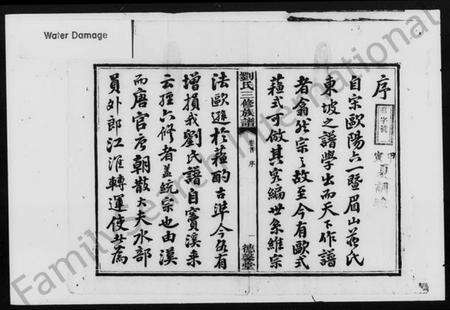 Water Damage
序
自宋歐陽六一暨眉山蘇氏
東坡之譜學出而天下作譜
者翕然宗之故至今有歐式
蘇式可倣其實編世系維宗
劉氏三修族譜
序
一
德馨堂
法歐遜於蘇酌古準今各有
增損我劉氏譜自竇溪來
云經六修者並統宗也由漢
而唐官唐朝散大夫水部
員外郎江淮轉運使
FamilySearch International